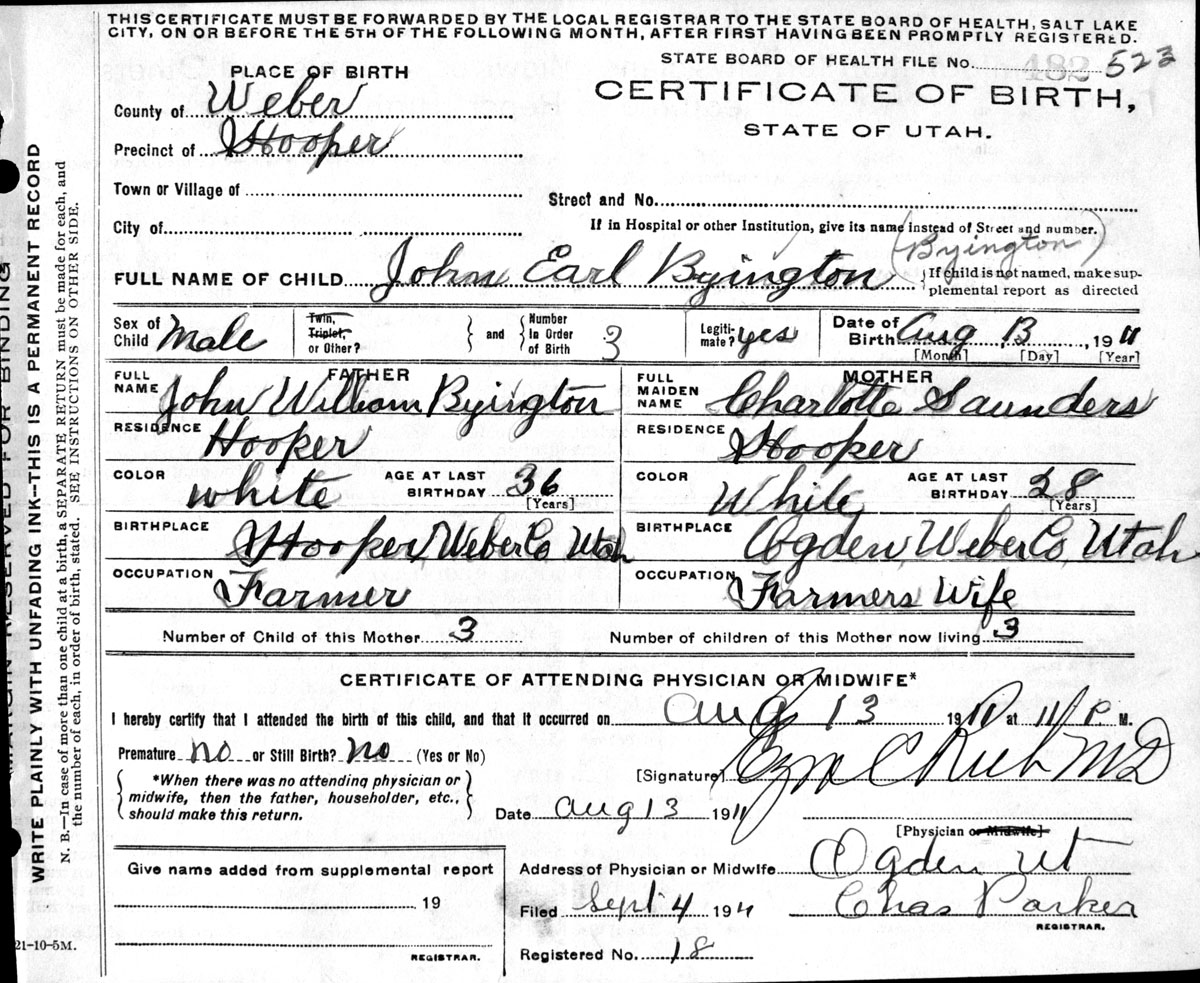 THIS CERTIFICATE MUST BE FORWARDED BY THE LOCAL REGISTRAR TO THE STATE BOARD OF HEALTH, SALT LAKE
CITY, ON OR BEFORE THE 5TH OF THE FOLLOWING MONTH, AFTER FIRST HAVING BEEN PROMPTLY REGISTERED.
STATE BOARD OF HEALTH FILE No. 482 523
PLACE OF BIRTH
CERTIFICATE OF BIRTH,
STATE OF UTAH.
County of Weber
Precinct of Hooper
Town or Village of
Street and No.
City of
If in Hospital or other Institution, give its name instead of Street and number.
(Byington)
FULL NAME OF CHILD John Earl Byington
{If child is not named, make sup-
plemental report as directed
Sex of Child Male
Twin, Triplet, or Other?
and
Number in Order of Birth 3
Legiti-mate? yes
Date of Birth Aug 13, 1911
[Month] [Day] [Year]
FATHER
FULL NAME John William Byington
RESIDENCE Hooper
COLOR white AGE AT LAST BIRTHDAY 36
[Years]
BIRTHPLACE Hooper, Weber Co, Utah
OCCUPATION Farmer
MOTHER
FULL MAIDEN NAME Charlotte Saunders
RESIDENCE Hooper
COLOR White AGE AT LAST BIRTHDAY 28
[Years]
BIRTHPLACE Ogden, Weber Co, Utah
OCCUPATION Farmers Wife
Number of Child of this Mother 3 Number of children of this Mother now living 3
CERTIFICATE OF ATTENDING PHYSICIAN OR MIDWIFE*
I hereby certify that I attended the birth of this child, and that it occurred on Aug 13 1911 at 11 P M.
Premature no or Still Birth? no (Yes or No)
*When there was no attending physician or
midwife, then the father, householder, etc.,
should make this return.
[Signature] C Rich MD
Date Aug 13 1911
[Physician or Midwife]
Address of Physician or Midwife Ogden Ut
Filed Sept 4 1911 Chas Parker
REGISTRAR.
Registered No. 18
Give name added from supplemental report
19
REGISTRAR.
21-10-5M.
MARGIN RESERVED FOR BINDING
WRITE PLAINLY WITH UNFADING INK—THIS IS A PERMANENT RECORD
N. B.—In case of more than one child at a birth, a SEPARATE RETURN must be made for each, and
the number of each, in order of birth, stated. SEE INSTRUCTIONS ON OTHER SIDE.